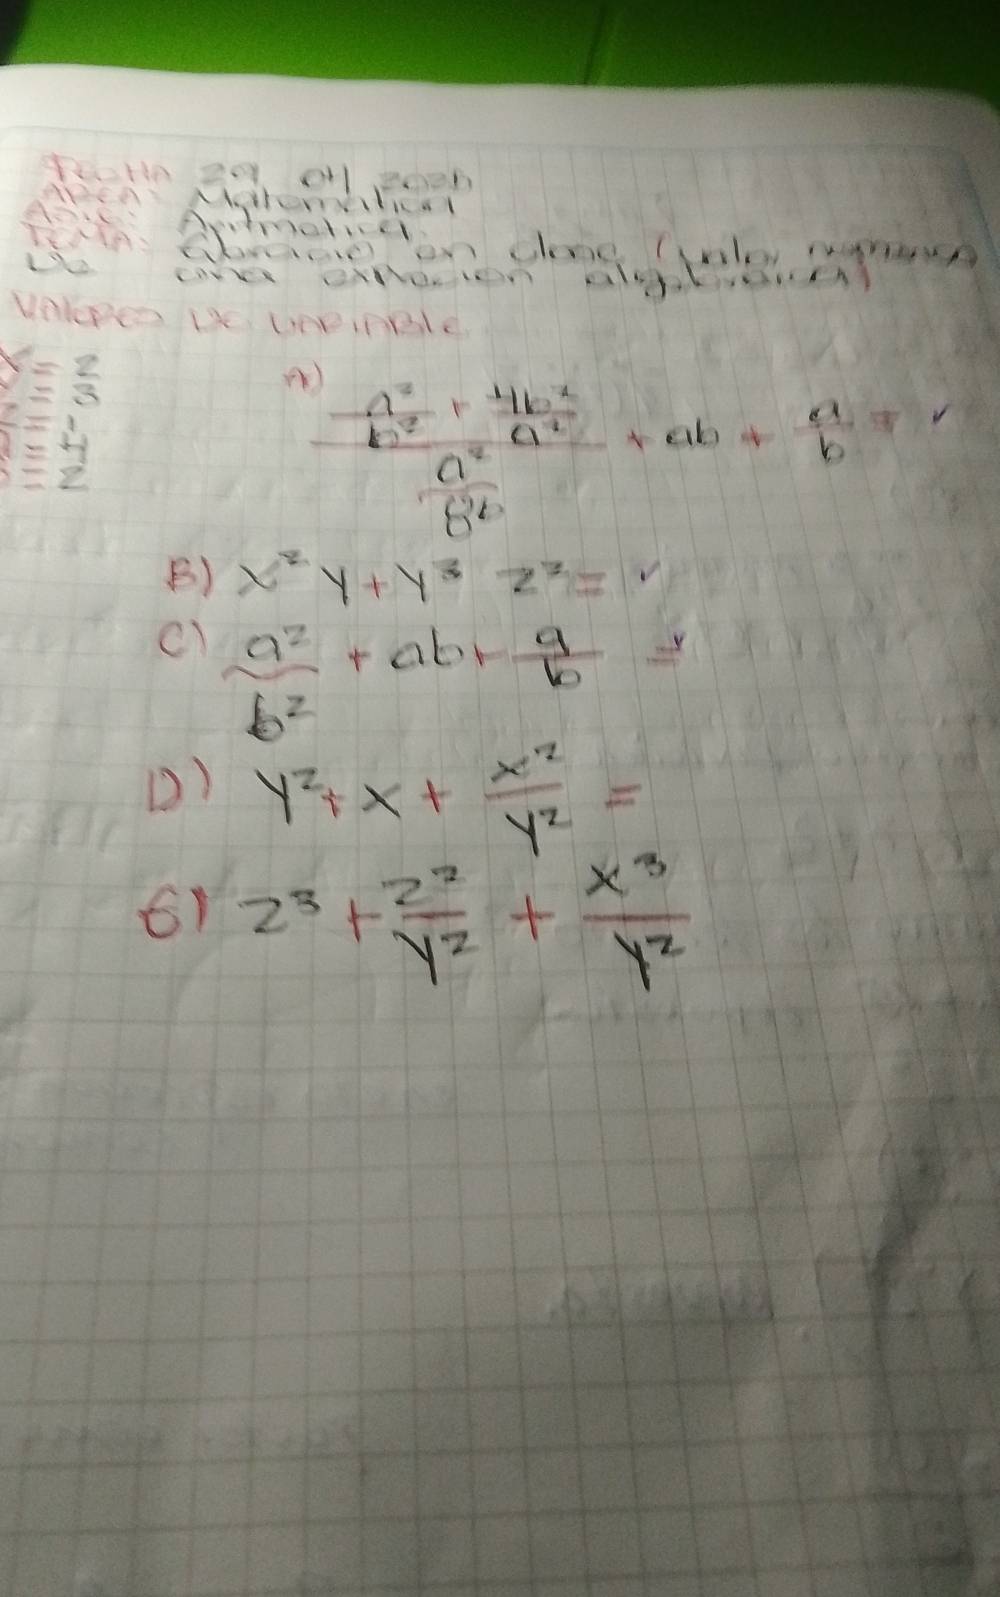 FECHA 29 04 2026
AREA: Matematica
ASIG: Aritmetica
TEMA: en clase (valor numerico
De una exprecion algebraica)
VALORES DE VARIABLE
= 2
= 3
= -
= 4
= 2
A) (a²/b² + 4b²/a²)/(a²/8b) + ab + a/b = ✓
B) x² y + y³ z² = ✓
C) a²/b² + ab + a/b = ✓
D) y² + x + x²/y² =
E) z³ + z²/y² + x³/y²